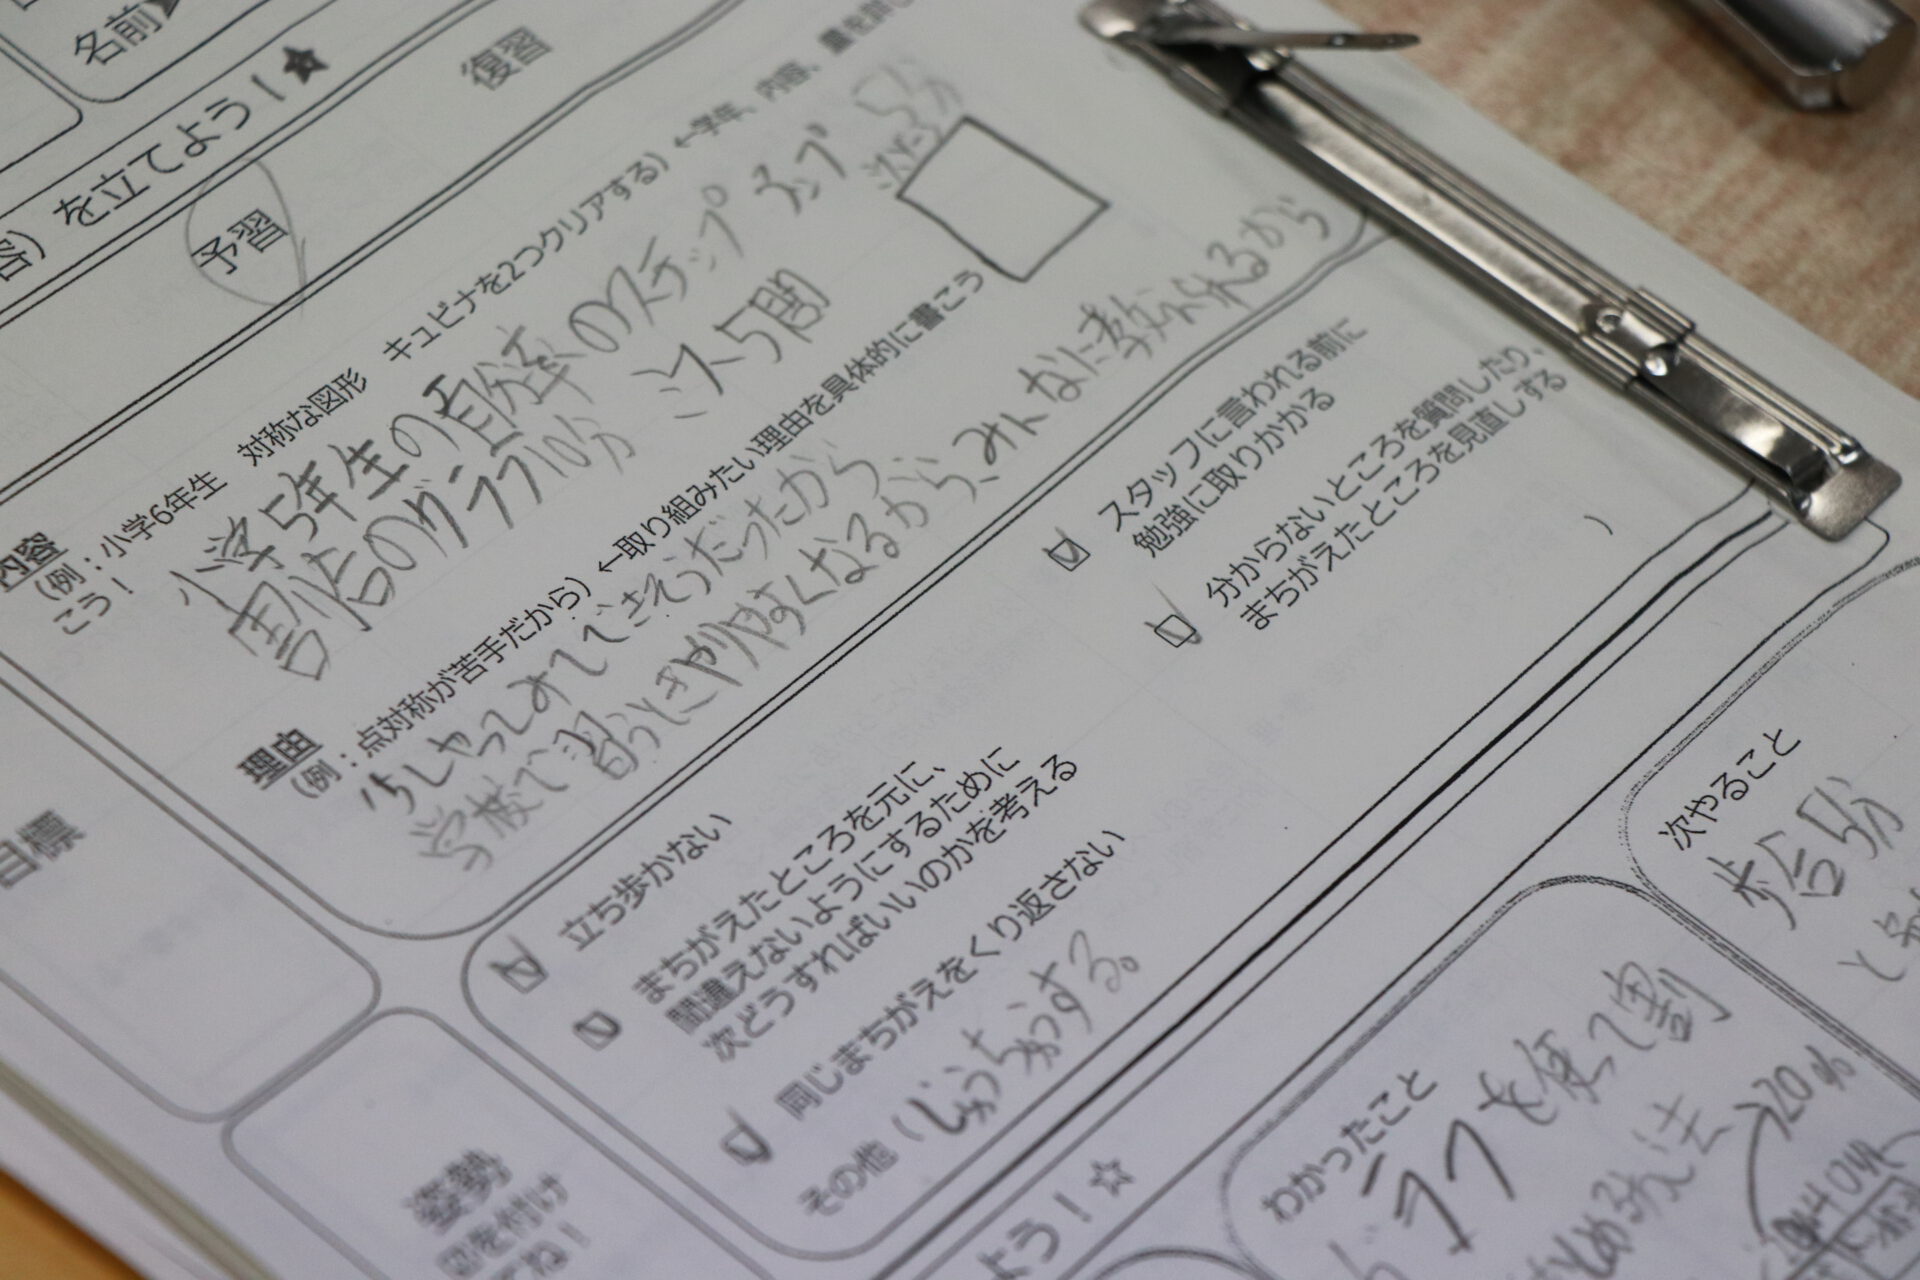 名前
容）を立てよう！☆
予習
復習
内容
（例：小学6年生　対称な図形　キュビナを2つクリアする）←学年、内容、量を詳し
こう！
小学5年生の百分率のステップ
割合のグラフ10分　ミス5問
次やる5分
理由
（例：点対称が苦手だから）←取り組みたい理由を具体的に書こう
いちしやってみてできそうだったから、
学校で習うときやりやすくなるから、みんなに教えられるから
目標
立ち歩かない
まちがえたところを元に、
間違えないようにするために
次どうすればいいのかを考える
同じまちがえをくり返さない
その他（しゅうちゅうする。
）
スタッフに言われる前に
勉強に取りかかる
分からないところを質問したり、
まちがえたところを見直しする
姿勢
を付け
てね！
よう！☆
わかったこと
グラフを使って割
求める方法
20%
次やること
歩合5分
と